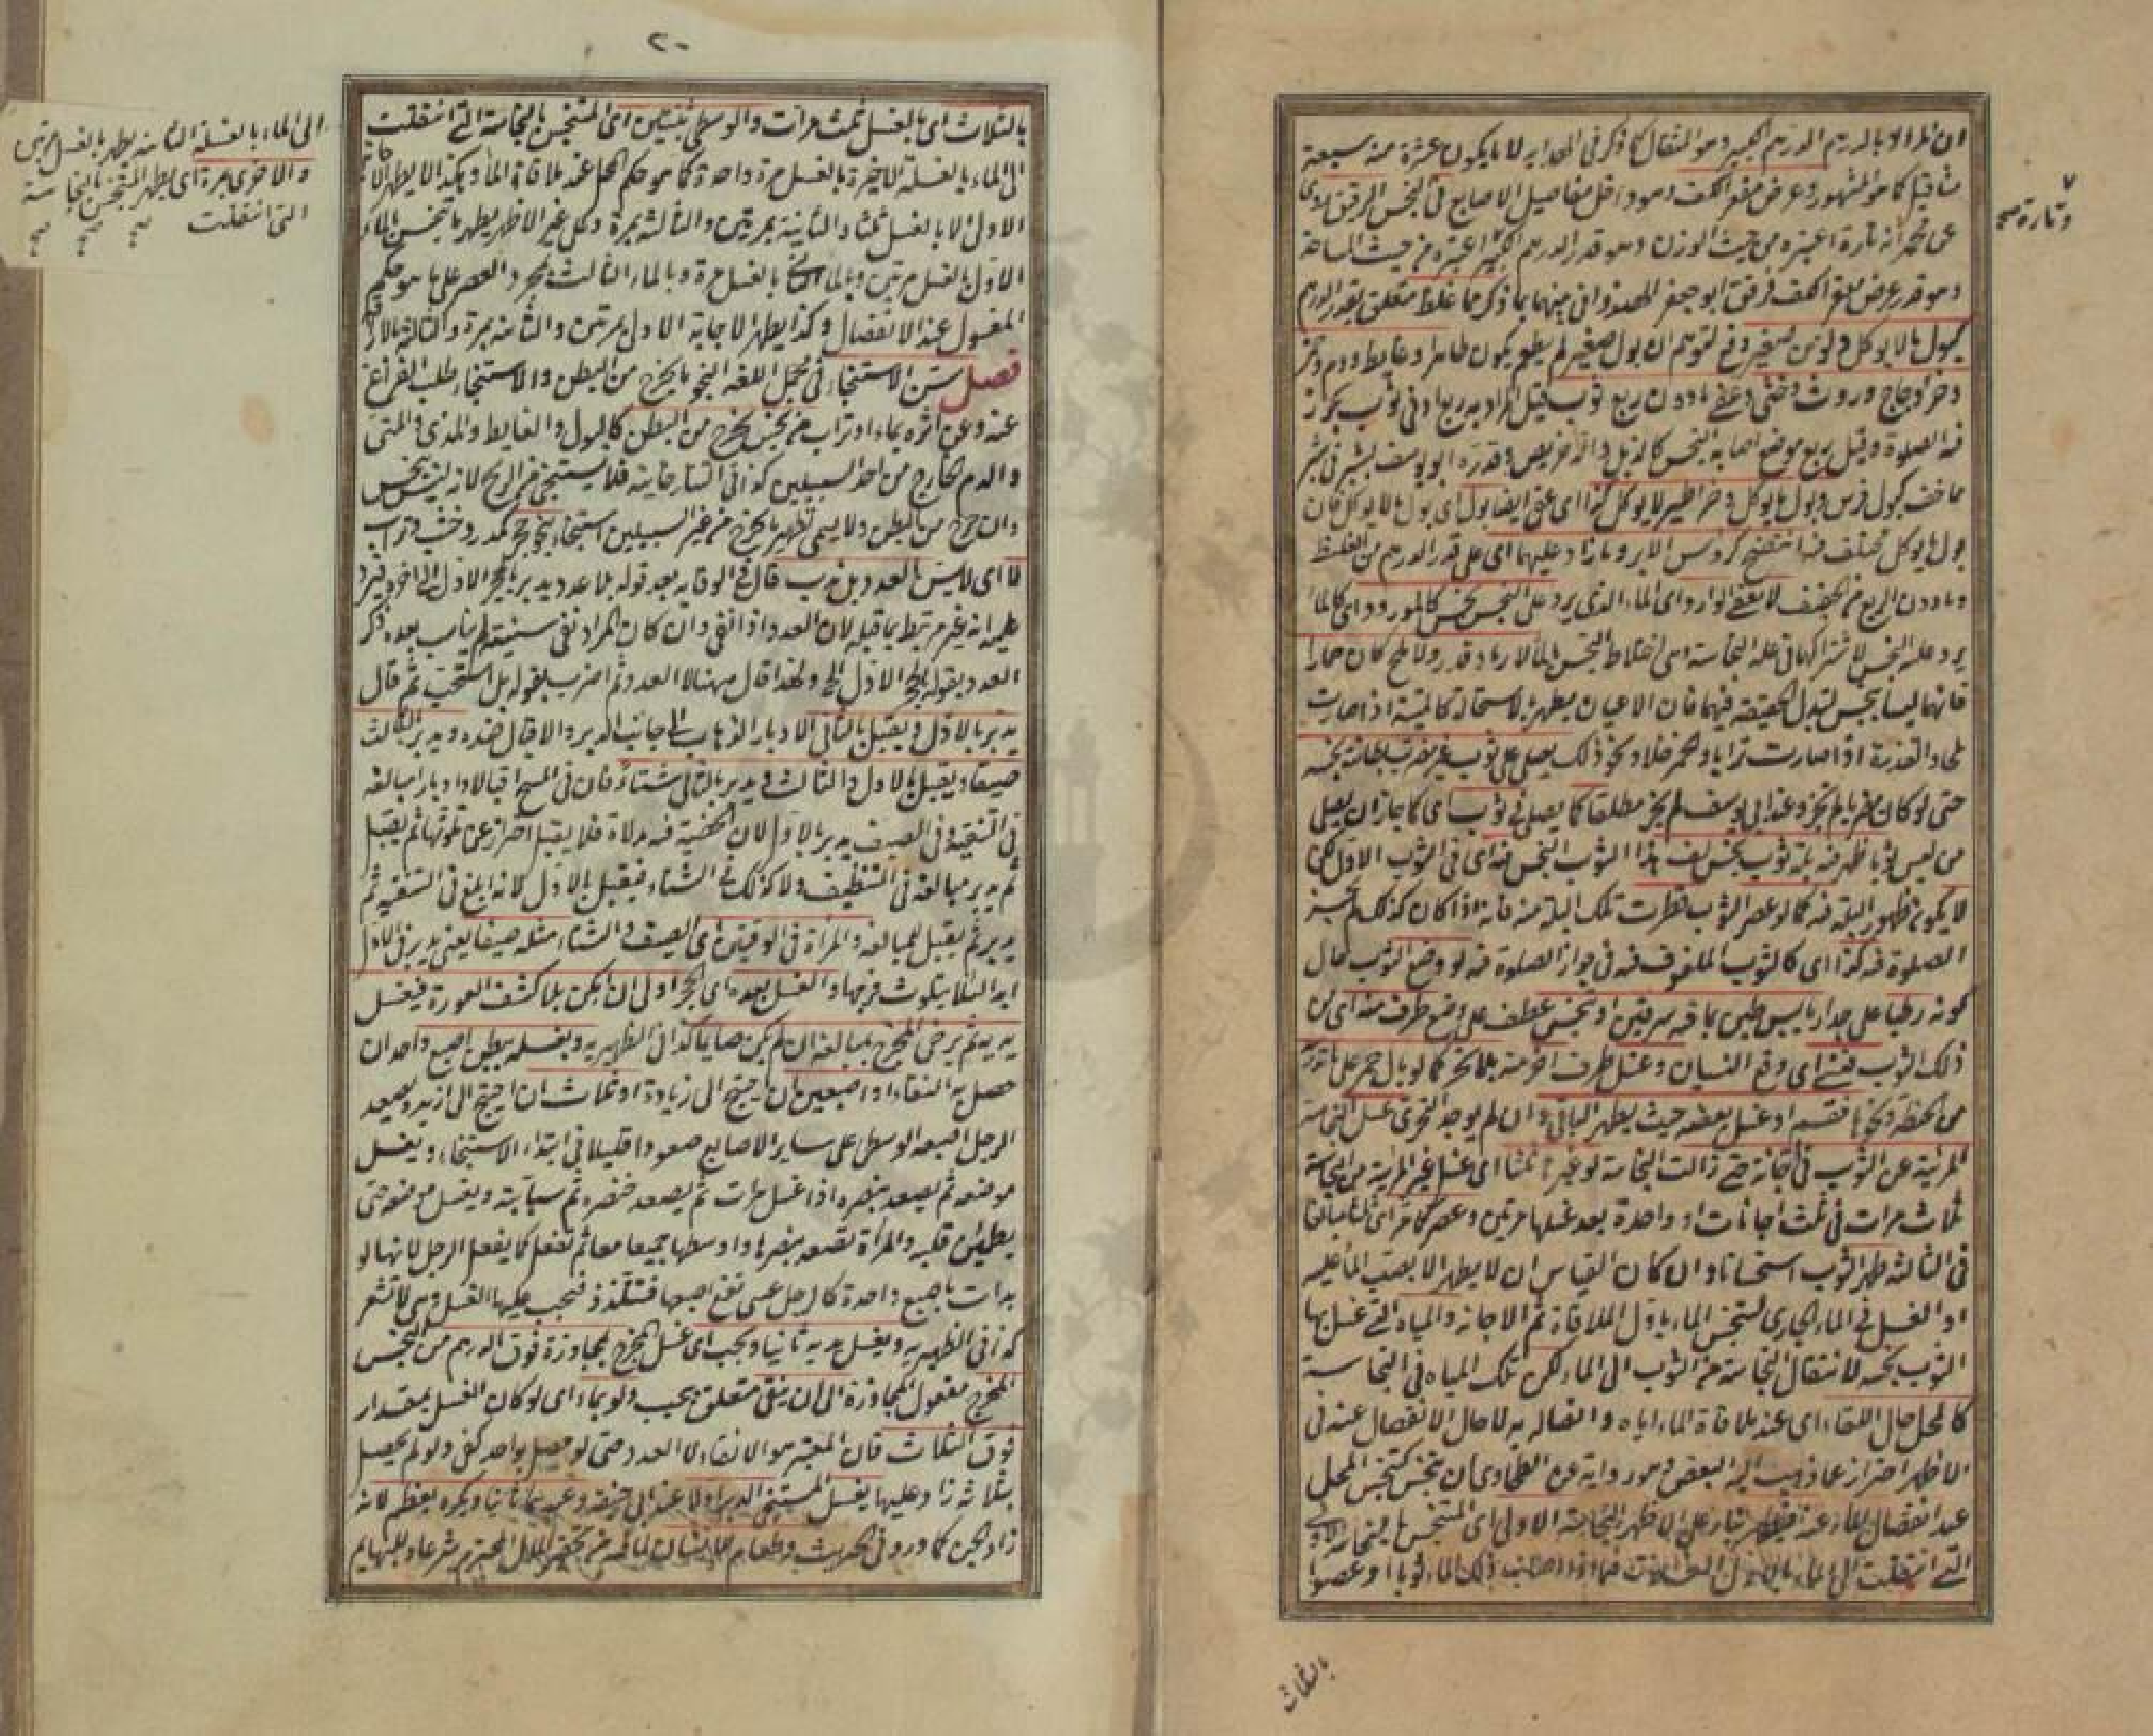 ان المراد بالدرهم الدرهم الكبير وهو المثقال كما ذكر في الهداية لا ما يكون عشرة منه سبعة
مثاقيل كما هو المشهور وعرض مقعر الكف وهو داخل مفاصل الاصابع في النجس الرقيق روي
وتارة صح
عن محمد انه تارة اعتبره من حيث الوزن وهو قدر الدرهم الكبير اعتبره من حيث المساحة
وهو قدر عرض مقعر الكف فوفق ابو جعفر الهندواني بينهما بما ذكر مما غلظ متعلق بقدر الدرهم
كبول ما لا يوكل ولو من صغير دفع لتوهم ان بول صغير لم يطعم يكون طاهرا وغايط ودم وخمر
وخرء دجاج وروث وخثي وعفي ما دون ربع ثوب قيل المراد به ربع ادنى ثوب يجوز
فيه الصلوة وقيل ربع موضع اصابه النجس كالذيل والدخريص وقدره ابو يوسف بشبر في شبر
مما خف كبول فرس وبول ما يوكل وخرء طير لا يوكل كذا اي عفي ايضا بول اي بول ما لا يوكل فان
بول ما يوكل مختلف فيه انتضح كرؤس الابر وما زاد عليهما اي على قدر الدرهم من الغليظ
وما دون الربع من الخفيف لا يعفى الوارد اي الماء الذي يرد على النجس نجس كالمورود اي كالماء
يرد عليه النجس لاشتراكهما في علة النجاسة اي اختلاط النجس بالماء لا رماد قذر ولا ملح كان حمارا
فانهما ليسا بنجس لتبدل الحقيقة فيهما فان الاعيان يطهر بالاستحالة كالميتة اذا صارت
ملحا والعذرة اذا صارت ترابا والخمر خلا ونحو ذلك يصلى على ثوب غير مضرب بطانته نجسة
حتى لو كان مضربا لم يجز وعند ابي يوسف لم يجز مطلقا كما يصلى في ثوب اي كما جاز ان يصلي
من لبس ثوبا ظهر فيه بلة ثوب نجس لف هذا الثوب النجس فيه اي في الثوب الاول لكن
لا يكون ظهور البلة فيه كما لو عصر الثوب قطرت تلك البلة منه فانه اذا كان كذلك لم يجز
الصلوة فيه كذا اي كالثوب الملفوف فيه في جواز الصلوة فيه لو وضع الثوب حال
كونه رطبا على جدار يابس طين بما فيه سرقين او نجس عطف على وضع طرف منه اي من
ذلك الثوب فنسي اي وقع النسيان وغسل طرف اخر منه بلا تحر كما لو بال حمر على ما تدوسه
من الحنطة ونحوها فقسم او غسل بعضه حيث يطهر الباقي وان لم يوجد التحري غسل النجاسة
المرئية عن الثوب في اجانة حتى زالت النجاسة او غيرها ثلثا اي غسل غير المرئية من النجاسة
ثلاث مرات في ثلث اجانات او واحدة بعد غسلها مرتين وعصر كما مر اي ثلثا مبالغا
في الثالثة طهر الثوب استحسانا وان كان القياس ان لا يطهر الا بصب الماء عليه
او الغسل في الماء الجاري لتنجس الماء باول الملاقاة ثم الاجانة والمياه التي غسل بها
الثوب نجسة لانتقال النجاسة من الثوب الى الماء لكن تلك المياه في النجاسة
كالمحل حال اللقاء اي عند ملاقاة الماء اياه واتصاله به لا حال الانفصال عنه في
الاظهر احتراز عما ذهب اليه البعض وهو رواية عن الطحاوي ان تنجس كتنجس المحل
عند انفصال الماء عنه فيطهر بناء على الاظهر النجاسة الاولى اي المتنجس بالنجاسة الاولى
التي انتقلت الى الماء بالاول الغسلات فما اذا اصاب ذلك الماء ثوبا او عضوا
بالثلاث
٢٠
بالثلاث اي بالغسل ثلث مرات والوسطى بثنتين اي المتنجس بالنجاسة التي انتقلت
الى الماء بالغسلة الاخيرة بالغسل مرة واحدة كما هو حكم المحل عند ملاقاة الماء وهكذا لا يطهر الاجانة
الاول الا بالغسل ثلثا والثانية بمرتين والثالثة بمرة وكل غير الاظهر يطهر ما تنجس بالماء
الاول بالغسل مرتين وبالماء الثاني بالغسل مرة وبالماء الثالث بمجرد العصر على ما هو حكم
المغسول عند الانفصال وكذا يطهر الاجانة الاولى بمرتين والثانية بمرة والثالثة بالاراقة
فصل سن الاستنجاء في مجمل اللغة النجو ما يخرج من البطن والاستنجاء طلب الفراغ
عنه وعن اثره بماء او تراب من نجس يخرج من البطن كالبول والغايط والمذي والمني
والدم الخارج من احد السبيلين كذا في التتارخانية فلا يستنجى من الريح لانه ليس بنجس
وان خرج من البطن ولا يسمى تطهير ما يخرج من غير السبيلين استنجاء بنحو حجر كمدر وخشب وتراب
لا اي لا يسن العدد بل ندب قال في الوقاية بعد قوله بلا عدد يدبر بالحجر الاول الى اخره ويرد
عليه انه غير مرتبط بما قبله لان العدد اذا نفى وان كان المراد نفي سنيته لم يناسب بعده ذكر
العدد بقوله بالحجر الاول الخ ولهذا قال ههنا لا العدد ثم اضرب بقوله بل استحب ثم قال
يدبر بالاول ويقبل بالثاني الادبار الذهاب الى جانب الدبر والاقبال ضده ويدبر بالثالث
صيفا ويقبل بالاول والثالث ويدبر بالثاني شتاء فان في المسح اقبالا وادبارا مبالغة
في التنقية وفي الصيف يدبر بالاول لان الخصية فيه مدلاة فلا يقبل احترازا عن تلوثها ثم يقبل
ثم يدبر مبالغة في التنظيف ولا كذلك في الشتاء فيقبل بالاول لانه ابلغ في التنقية ثم
يدبر ثم يقبل للمبالغة والمرأة في الوقتين اي الصيف والشتاء مثله صيفا يعني يدبر في الاول
ابدا لئلا يتلوث فرجها والغسل بعده اي الحجر اولى ان امكن بلا كشف العورة فيغسل
يديه ثم يرخي المخرج بمبالغة ان لم يكن صايما كذا في الظهيرية ويغسله ببطن اصبع واحد ان
حصل به النقاء او اصبعين ان احتيج الى زيادة او ثلاث ان احتيج الى ازيد ويصعد
الرجل اصبعه الوسطى على ساير الاصابع صعودا قليلا في ابتداء الاستنجاء ويغسل
موضعه ثم يصعد بنصره اذا غسل مرات ثم يصعد خنصره ثم سبابته ويغسل موضعه حتى
يطمئن قلبه والمرأة تصعد بنصرها واوسطها جميعا معا ثم تفعل كما يفعل الرجل لانها لو
بدات باصبع واحدة كالرجل عسى تقع اصبعها فتتلذذ فيجب عليها الغسل وهي لا تشعر
كذا في الظهيرية ويغسل يديه ثانيا ويجب اي غسل المخرج لمجاوزة فوق الدرهم من النجس
المخرج مفعول المجاوزة الى ان ينقى متعلق بيجب ولو بماء اي لو كان الغسل بمقدار
فوق الثلاث فان المعتبر هو الانقاء لا العدد حتى لو حصل بواحد كفى ولو لم يحصل
بثلاثة زاد عليها يغسل المستنجي الدبر اولا عند ابي حنيفة وعندهما ثانيا ويكره بعظم لانه
زاد الجن كما ورد في الحديث وطعام للانسان لما فيه من تحقير المال المحترم شرعا وللبهايم
الى الماء بالغسلة الثانية يطهر بالغسل مرتين
والاخرى بمرة اي يطهر المتنجس بالنجاسة
التي انتقلت صح صح صح